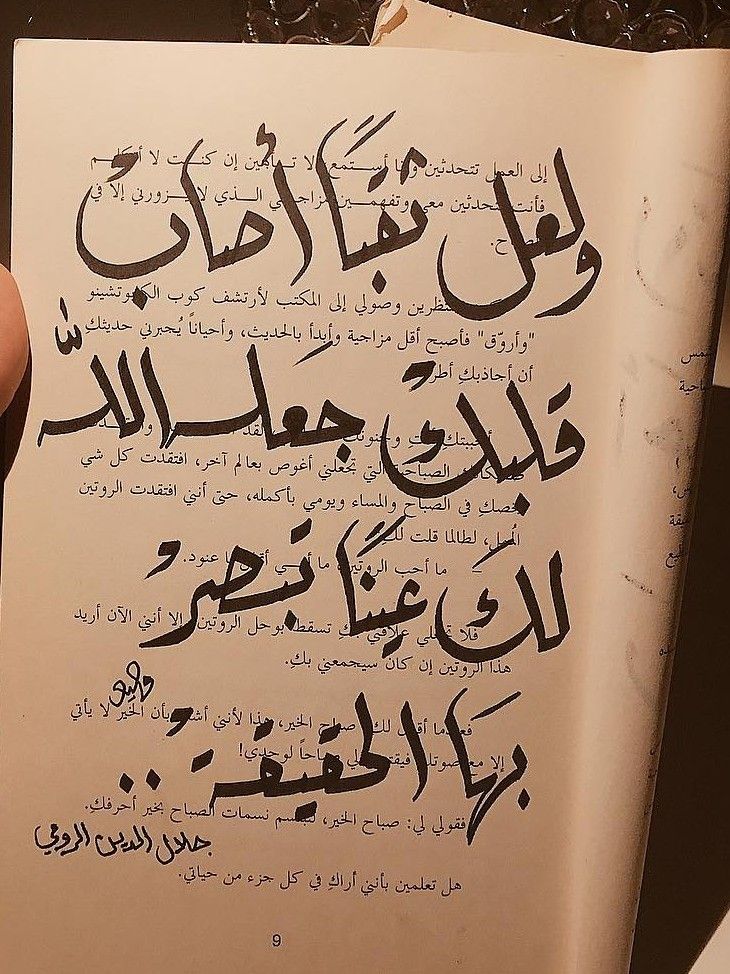 ولعل ثقبًا أصابْ
قلبكْ جَعله اللّٰه
لكَ عينًا تبصرْ
بهَا الحقيقةْ ..
جلال الدين الرومي
إلى العمل تتحدثين وأنا أستمع لا تأبهين إن كنت لا أتكلم
فأنت تتحدثين معي وتفهمين مزاجي الذي لا يزورني إلا في
الصباح.
تنتظرين وصولي إلى المكتب لأرتشف كوب الكابوتشينو
"وأروّق" فأصبح أقل مزاجية وأبدأ بالحديث، وأحياناً يُجبرني حديثك
أن أجاذبكِ
الصباحية التي تجعلني أغوص بعالم آخر، افتقدت كل شي
يخصك في الصباح والمساء ويومي بأكمله، حتى أنني افتقدت الروتين
الُممل، لطالما قلت لكِ
ما أحب الروتين، عنود.
فلا علاقتي تسقط بوحل الروتين، إلا أنني الآن أريد
هذا الروتين إن كان سيجمعني بكِ.
فعندما أقول لك صباح الخير، هذا لأنني بأن الخير لا يأتي
إلا لوحدي!
فقولي لي: صباح الخير، لتبتسم نسمات الصباح بخير أحرفكِ.
هل تعلمين بأنني أراكِ في كل جزء من حياتي.
9